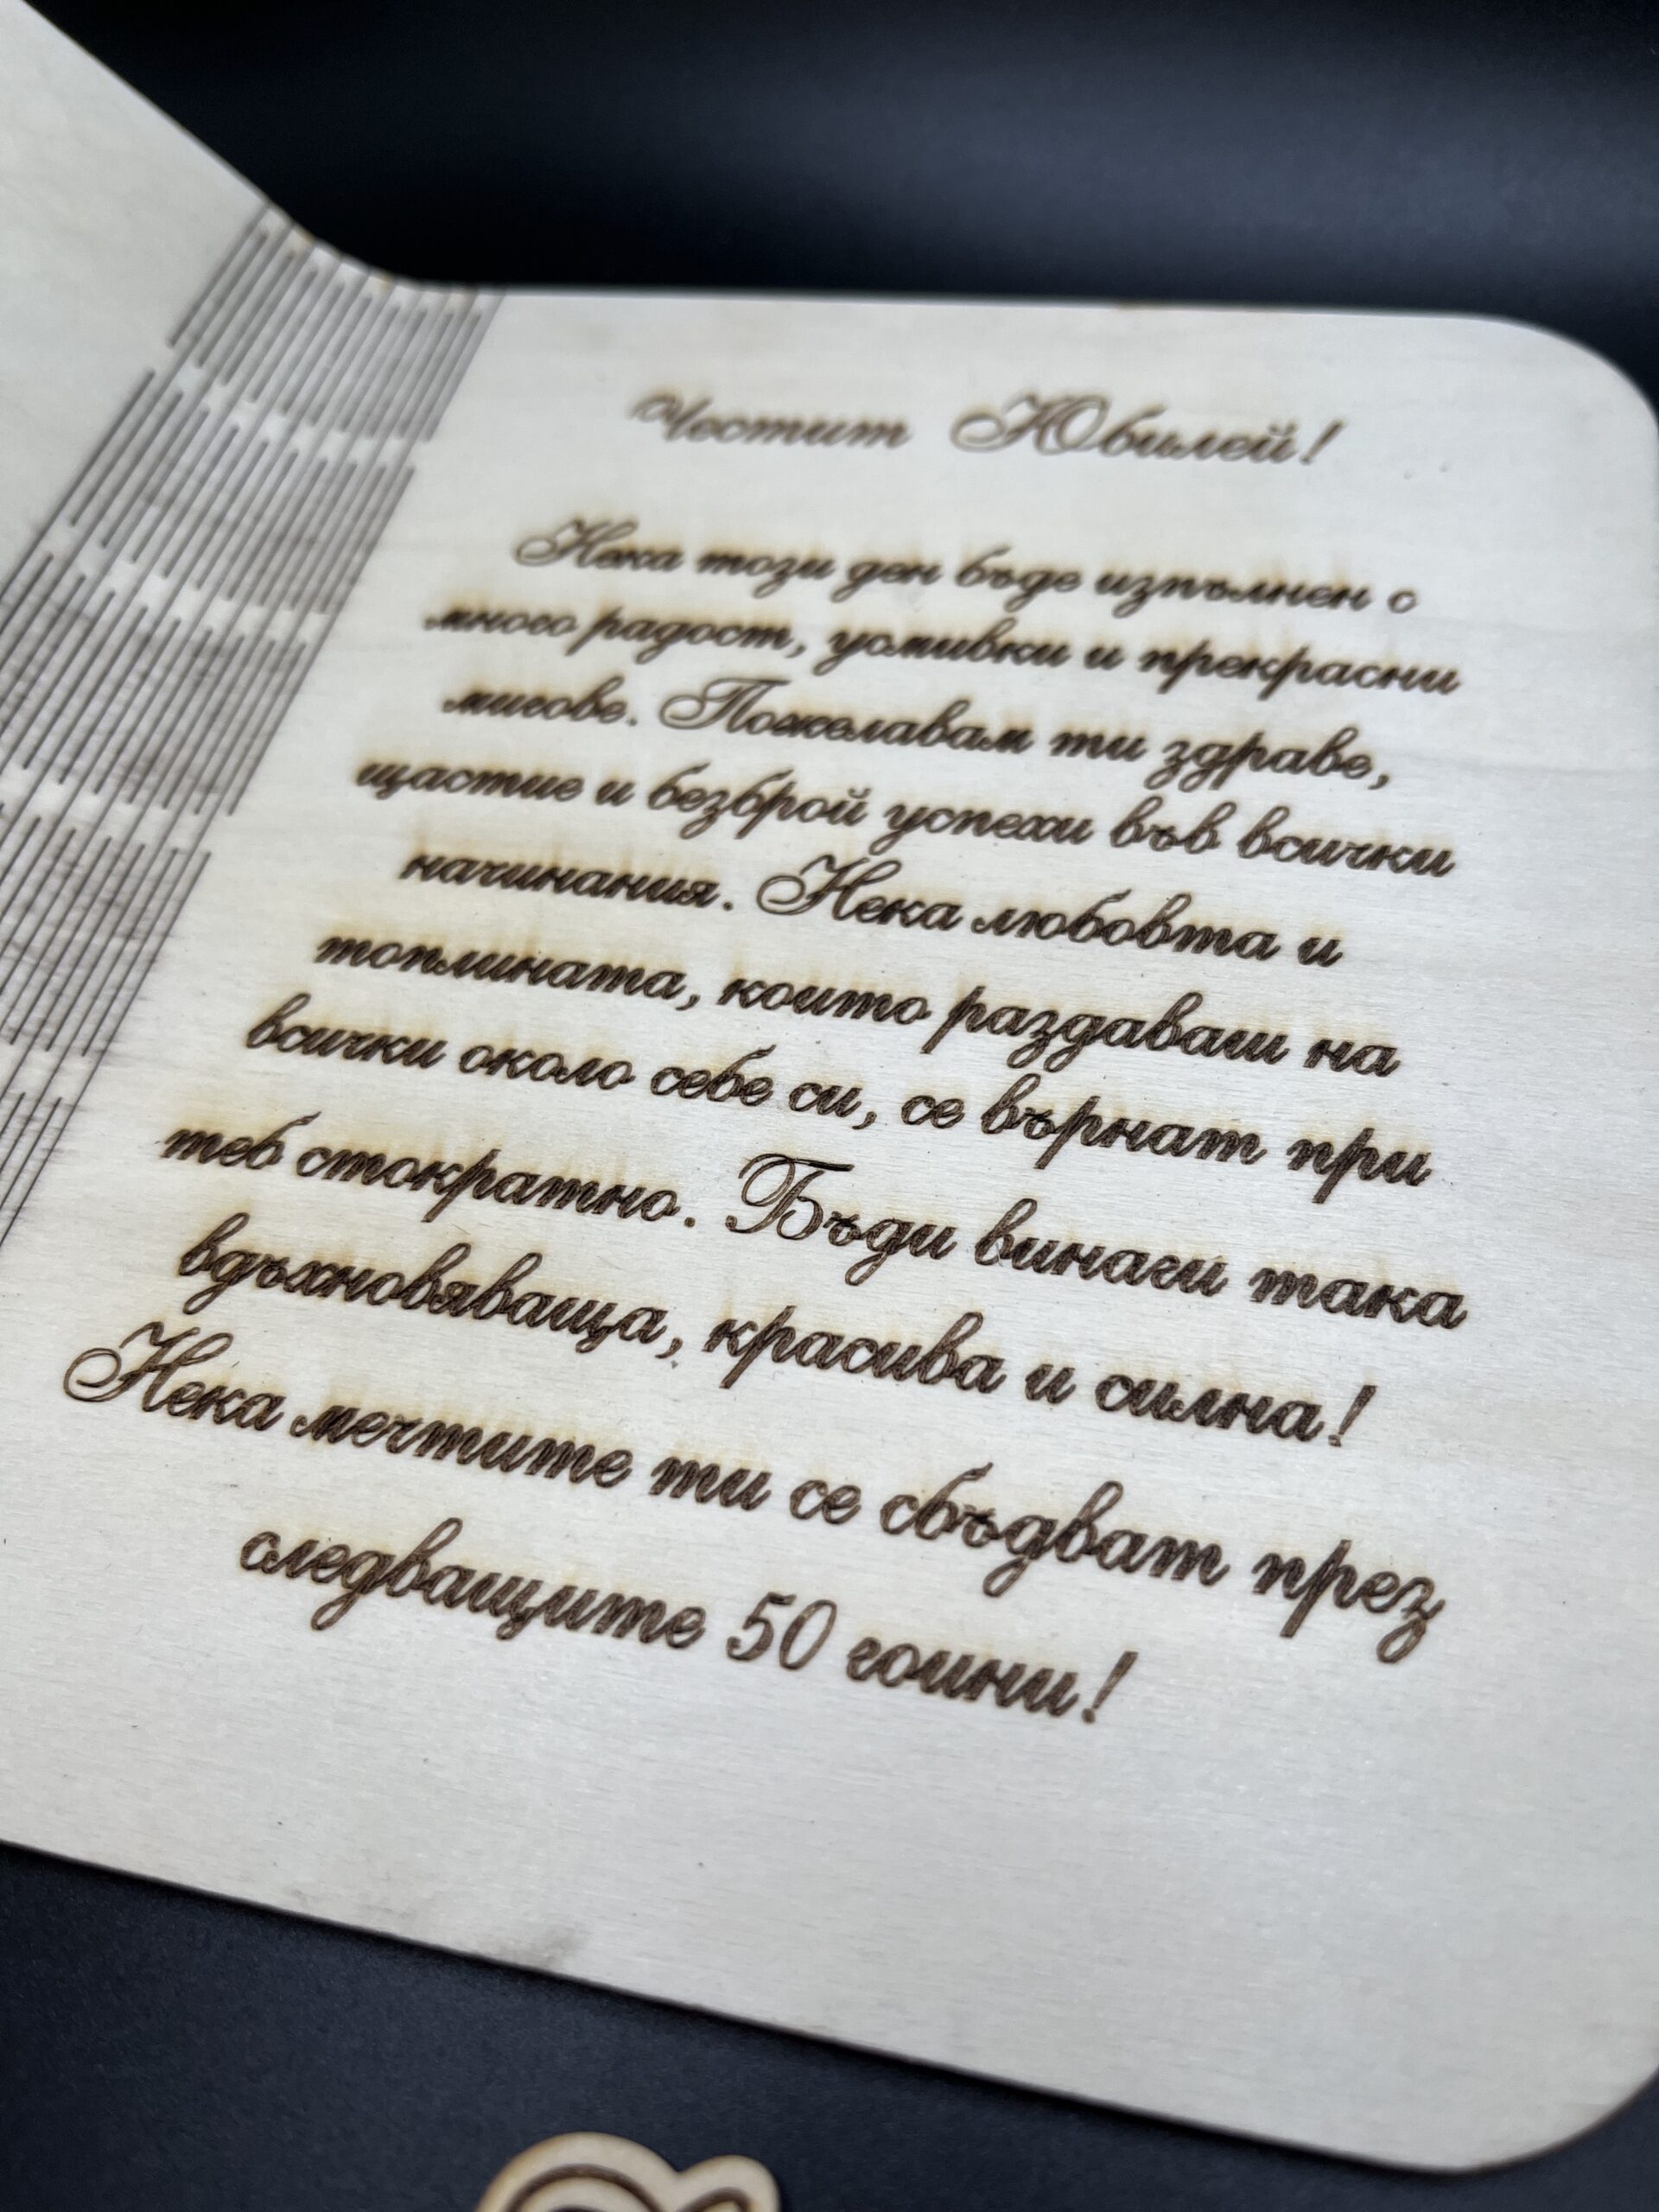 Честит Юбилей!
Нека този ден бъде изпълнен с
много радост, уомивки и прекрасни
мигове. Пожелавам ти здраве,
щастие и безброй успехи във всички
начинания. Нека любовта и
топлината, които раздаваш на
всички около себе си, се върнат при
теб стократно. Бъди винаги така
вдъхновяваща, красива и силна!
Нека мечтите ти се сбъдват през
следващите 50 гоини!